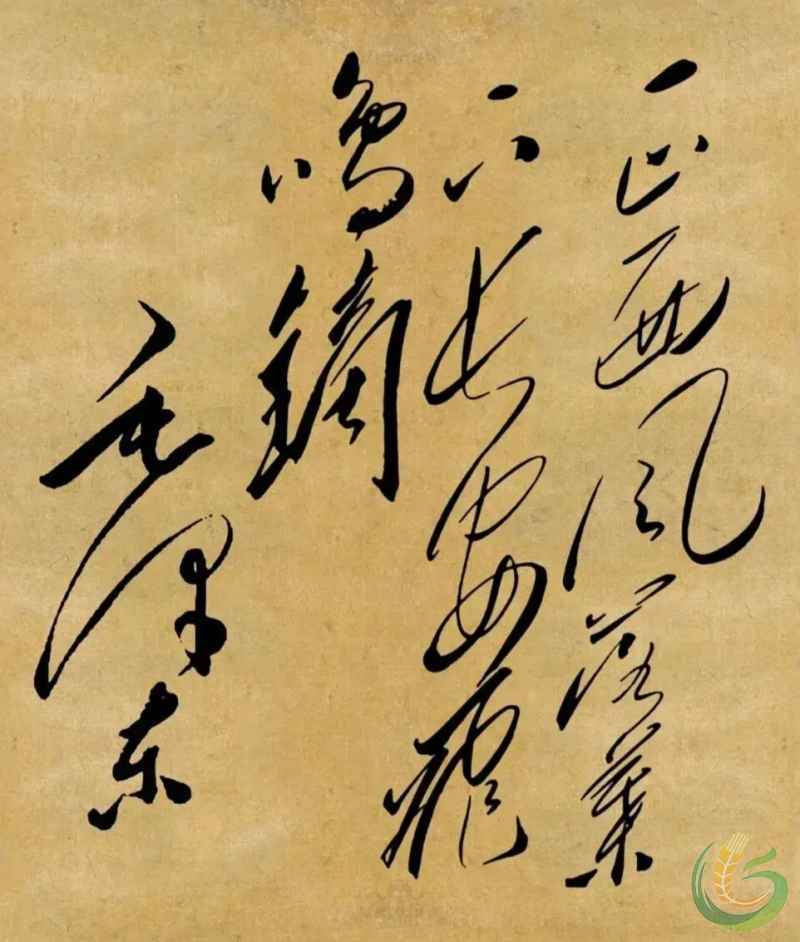 正西风落叶
下长安飞
鸣镝
毛泽东